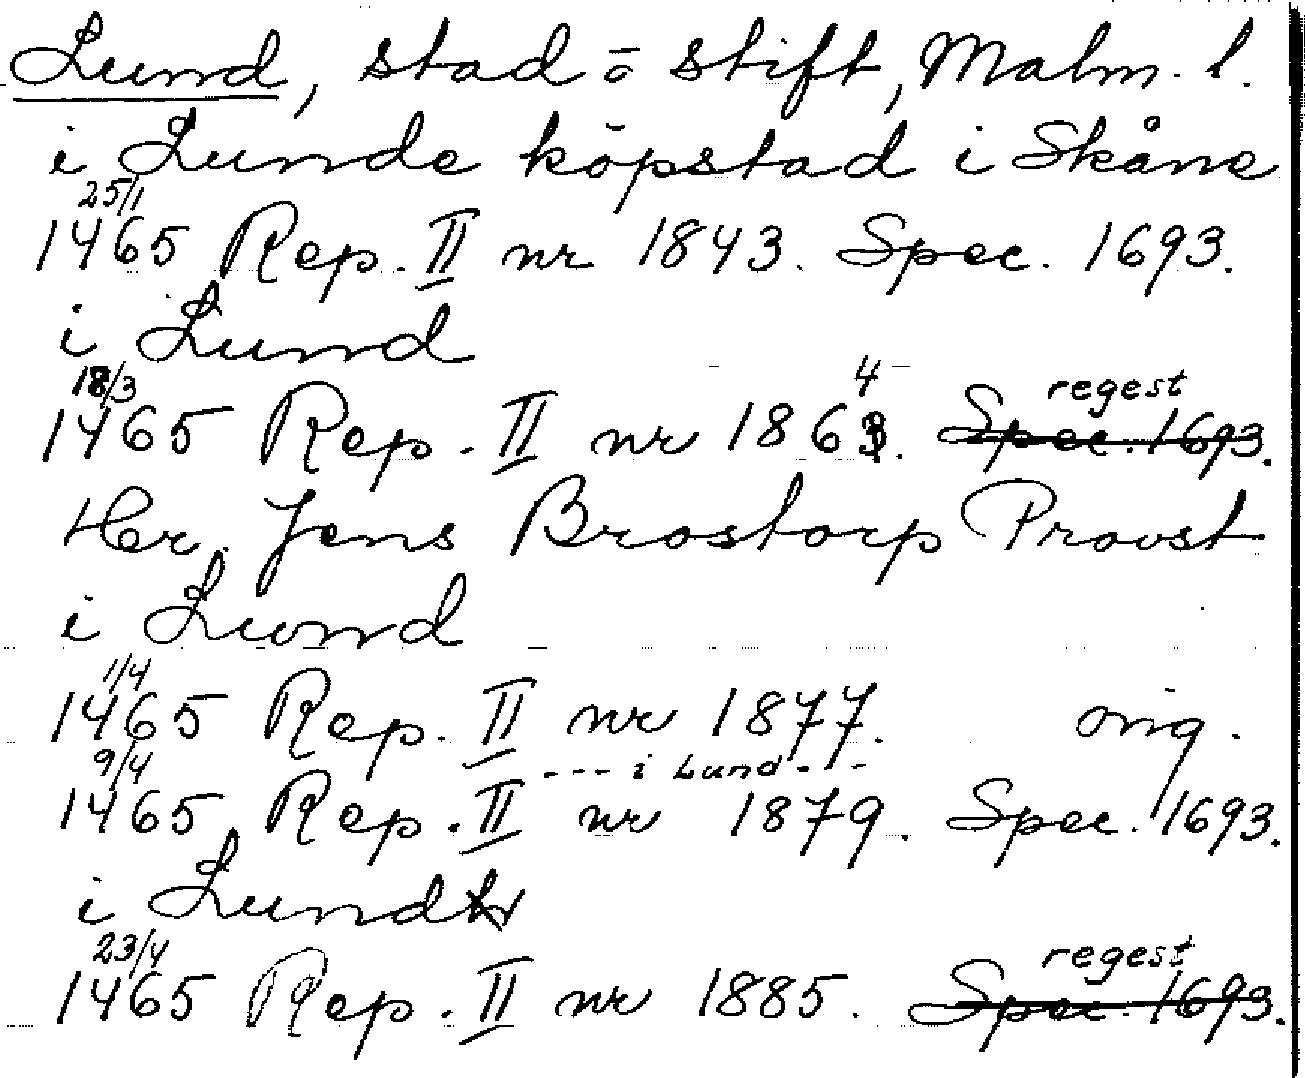 Lund, stad o stift, Malm. l.
i Lunde köpstad i Skåne
25/1
1465 Rep. II nr 1843. Spec. 1693.
i Lund
18/3 4 regest
1465 Rep. II nr 1863. Spec. 1693.
Her Jens Brostorp Provst
i Lund
1/4
1465 Rep. II nr 1877. orig.
9/4 --- i Lund - - -
1465 Rep. II nr 1879. Spec. 1693.
i Lund
23/4 regest
1465 Rep. II nr 1885. Spec. 1693.